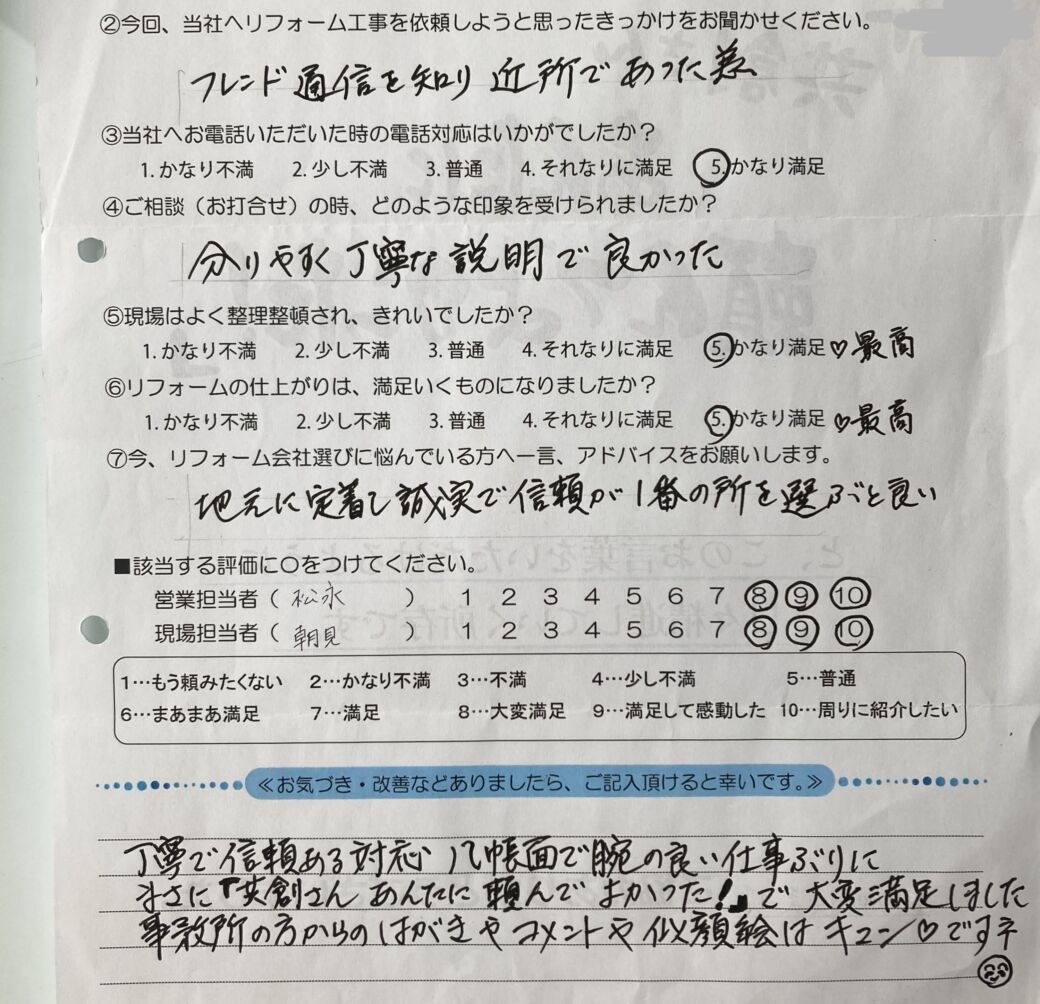 ②今回、当社へリフォーム工事を依頼しようと思ったきっかけをお聞かせください。
フレンド通信を知り 近所であった為
③当社へお電話いただいた時の電話対応はいかがでしたか？
1. かなり不満 2. 少し不満 3. 普通 4. それなりに満足 5. かなり満足
④ご相談（お打合せ）の時、どのような印象を受けられましたか？
分りやすく丁寧な説明で良かった
⑤現場はよく整理整頓され、きれいでしたか？
1. かなり不満 2. 少し不満 3. 普通 4. それなりに満足 5. かなり満足 ♡最高
⑥リフォームの仕上がりは、満足いくものになりましたか？
1. かなり不満 2. 少し不満 3. 普通 4. それなりに満足 5. かなり満足 ♡最高
⑦今、リフォーム会社選びに悩んでいる方へ一言、アドバイスをお願いします。
地元に定着し誠実で信頼が1番の所を選ぶと良い
■該当する評価に○をつけてください。
営業担当者（ 松永 ） 1 2 3 4 5 6 7 8 9 10
現場担当者（ 朝見 ） 1 2 3 4 5 6 7 8 9 10
1…もう頼みたくない 2…かなり不満 3…不満 4…少し不満 5…普通
6…まあまあ満足 7…満足 8…大変満足 9…満足して感動した 10…周りに紹介したい
≪お気づき・改善などありましたら、ご記入頂けると幸いです。≫
丁寧で信頼ある対応 几帳面で腕の良い仕事ぶりに
まさに『英創さん あんたに頼んでよかった！』で 大変満足しました
事務所の方からのはがきやコメントや似顔絵はキュン♡ですネ